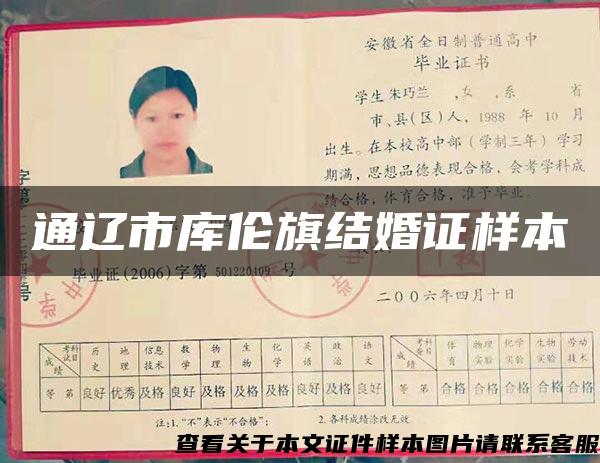 安徽省全日制普通高中
毕业证书
学生 朱巧兰 ,女 ,系 省
市、县(区)人, 1988 年 10 月
出生。在本校高中部(学制三年)学习
期满,思想品德表现合格,会考学科成
绩合格,体育合格,准予毕业。
通辽市库伦旗结婚证样本
毕业证(2006)字第 501220409 号
二00六年四月十日
考试科目 历史 地理 信息技术 数学 物理 生物 化学 英语 政治 语文
成绩
等第 良好 优秀 及格 良好 及格 及格 及格 良好 及格 良好
考查科目 体育 物理实验 化学实验 生物实验 劳动技术
成绩
等第 合格 合格 合格 合格 合格
注:1."不"表示"不合格"; 2.各科成绩涂改无效
查看关于本文证件样本图片请联系客服